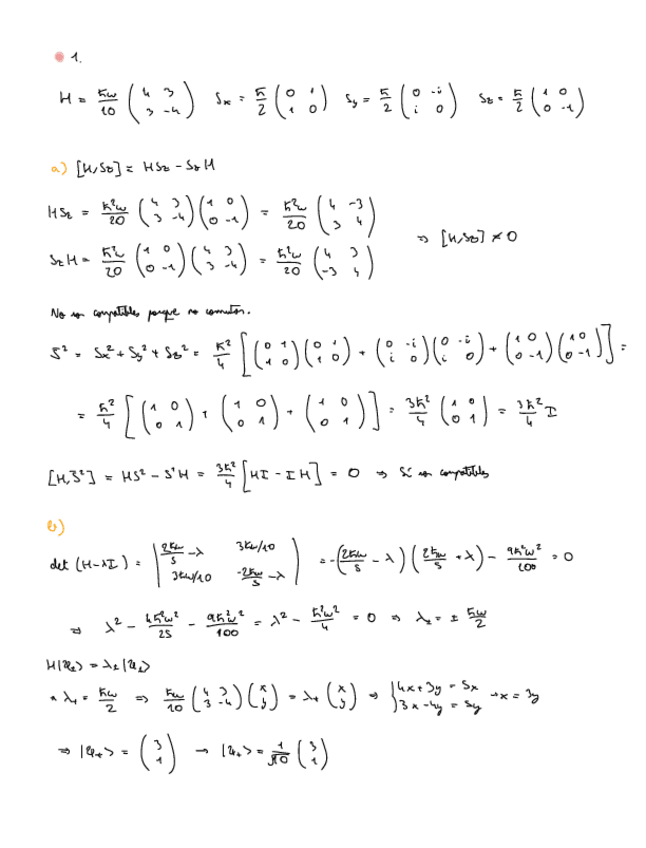 1.
H = ħω/10 ( 4 3 ; 3 -4 )   Sx = ħ/2 ( 0 1 ; 1 0 )   Sy = ħ/2 ( 0 -i ; i 0 )   Sz = ħ/2 ( 1 0 ; 0 -1 )
a) [H,Sz] = HSz - SzH
HSz = ħ²ω/20 ( 4 3 ; 3 -4 ) ( 1 0 ; 0 -1 ) = ħ²ω/20 ( 4 -3 ; 3 4 )
⇒ [H,Sz] ≠ 0
SzH = ħ²ω/20 ( 1 0 ; 0 -1 ) ( 4 3 ; 3 -4 ) = ħ²ω/20 ( 4 3 ; -3 4 )
No son compatibles porque no conmutan.
S² = Sx² + Sy² + Sz² = ħ²/4 [ ( 0 1 ; 1 0 ) ( 0 1 ; 1 0 ) + ( 0 -i ; i 0 ) ( 0 -i ; i 0 ) + ( 1 0 ; 0 -1 ) ( 1 0 ; 0 -1 ) ] =
= ħ²/4 [ ( 1 0 ; 0 1 ) + ( 1 0 ; 0 1 ) + ( 1 0 ; 0 1 ) ] = 3ħ²/4 ( 1 0 ; 0 1 ) = 3ħ²/4 I
[H,S²] = HS² - S²H = 3ħ²/4 [HI - IH] = 0 ⇒ Sí son compatibles
b)
det (H-λI) = | 2ħω/5 - λ 3ħω/10 ; 3ħω/10 -2ħω/5 - λ | = -(2ħω/5 - λ) (2ħω/5 + λ) - 9ħ²ω²/100 = 0
⇒ λ² - 4ħ²ω²/25 - 9ħ²ω²/100 = λ² - ħ²ω²/4 = 0 ⇒ λ± = ± ħω/2
H|ψ±> = λ±|ψ±>
* λ+ = ħω/2 ⇒ ħω/10 ( 4 3 ; 3 -4 ) ( x ; y ) = λ+ ( x ; y ) ⇒ { 4x + 3y = 5x ; 3x - 4y = 5y → x = 3y
⇒ |ψ+> = ( 3 ; 1 ) → |ψ+> = 1/√10 ( 3 ; 1 )